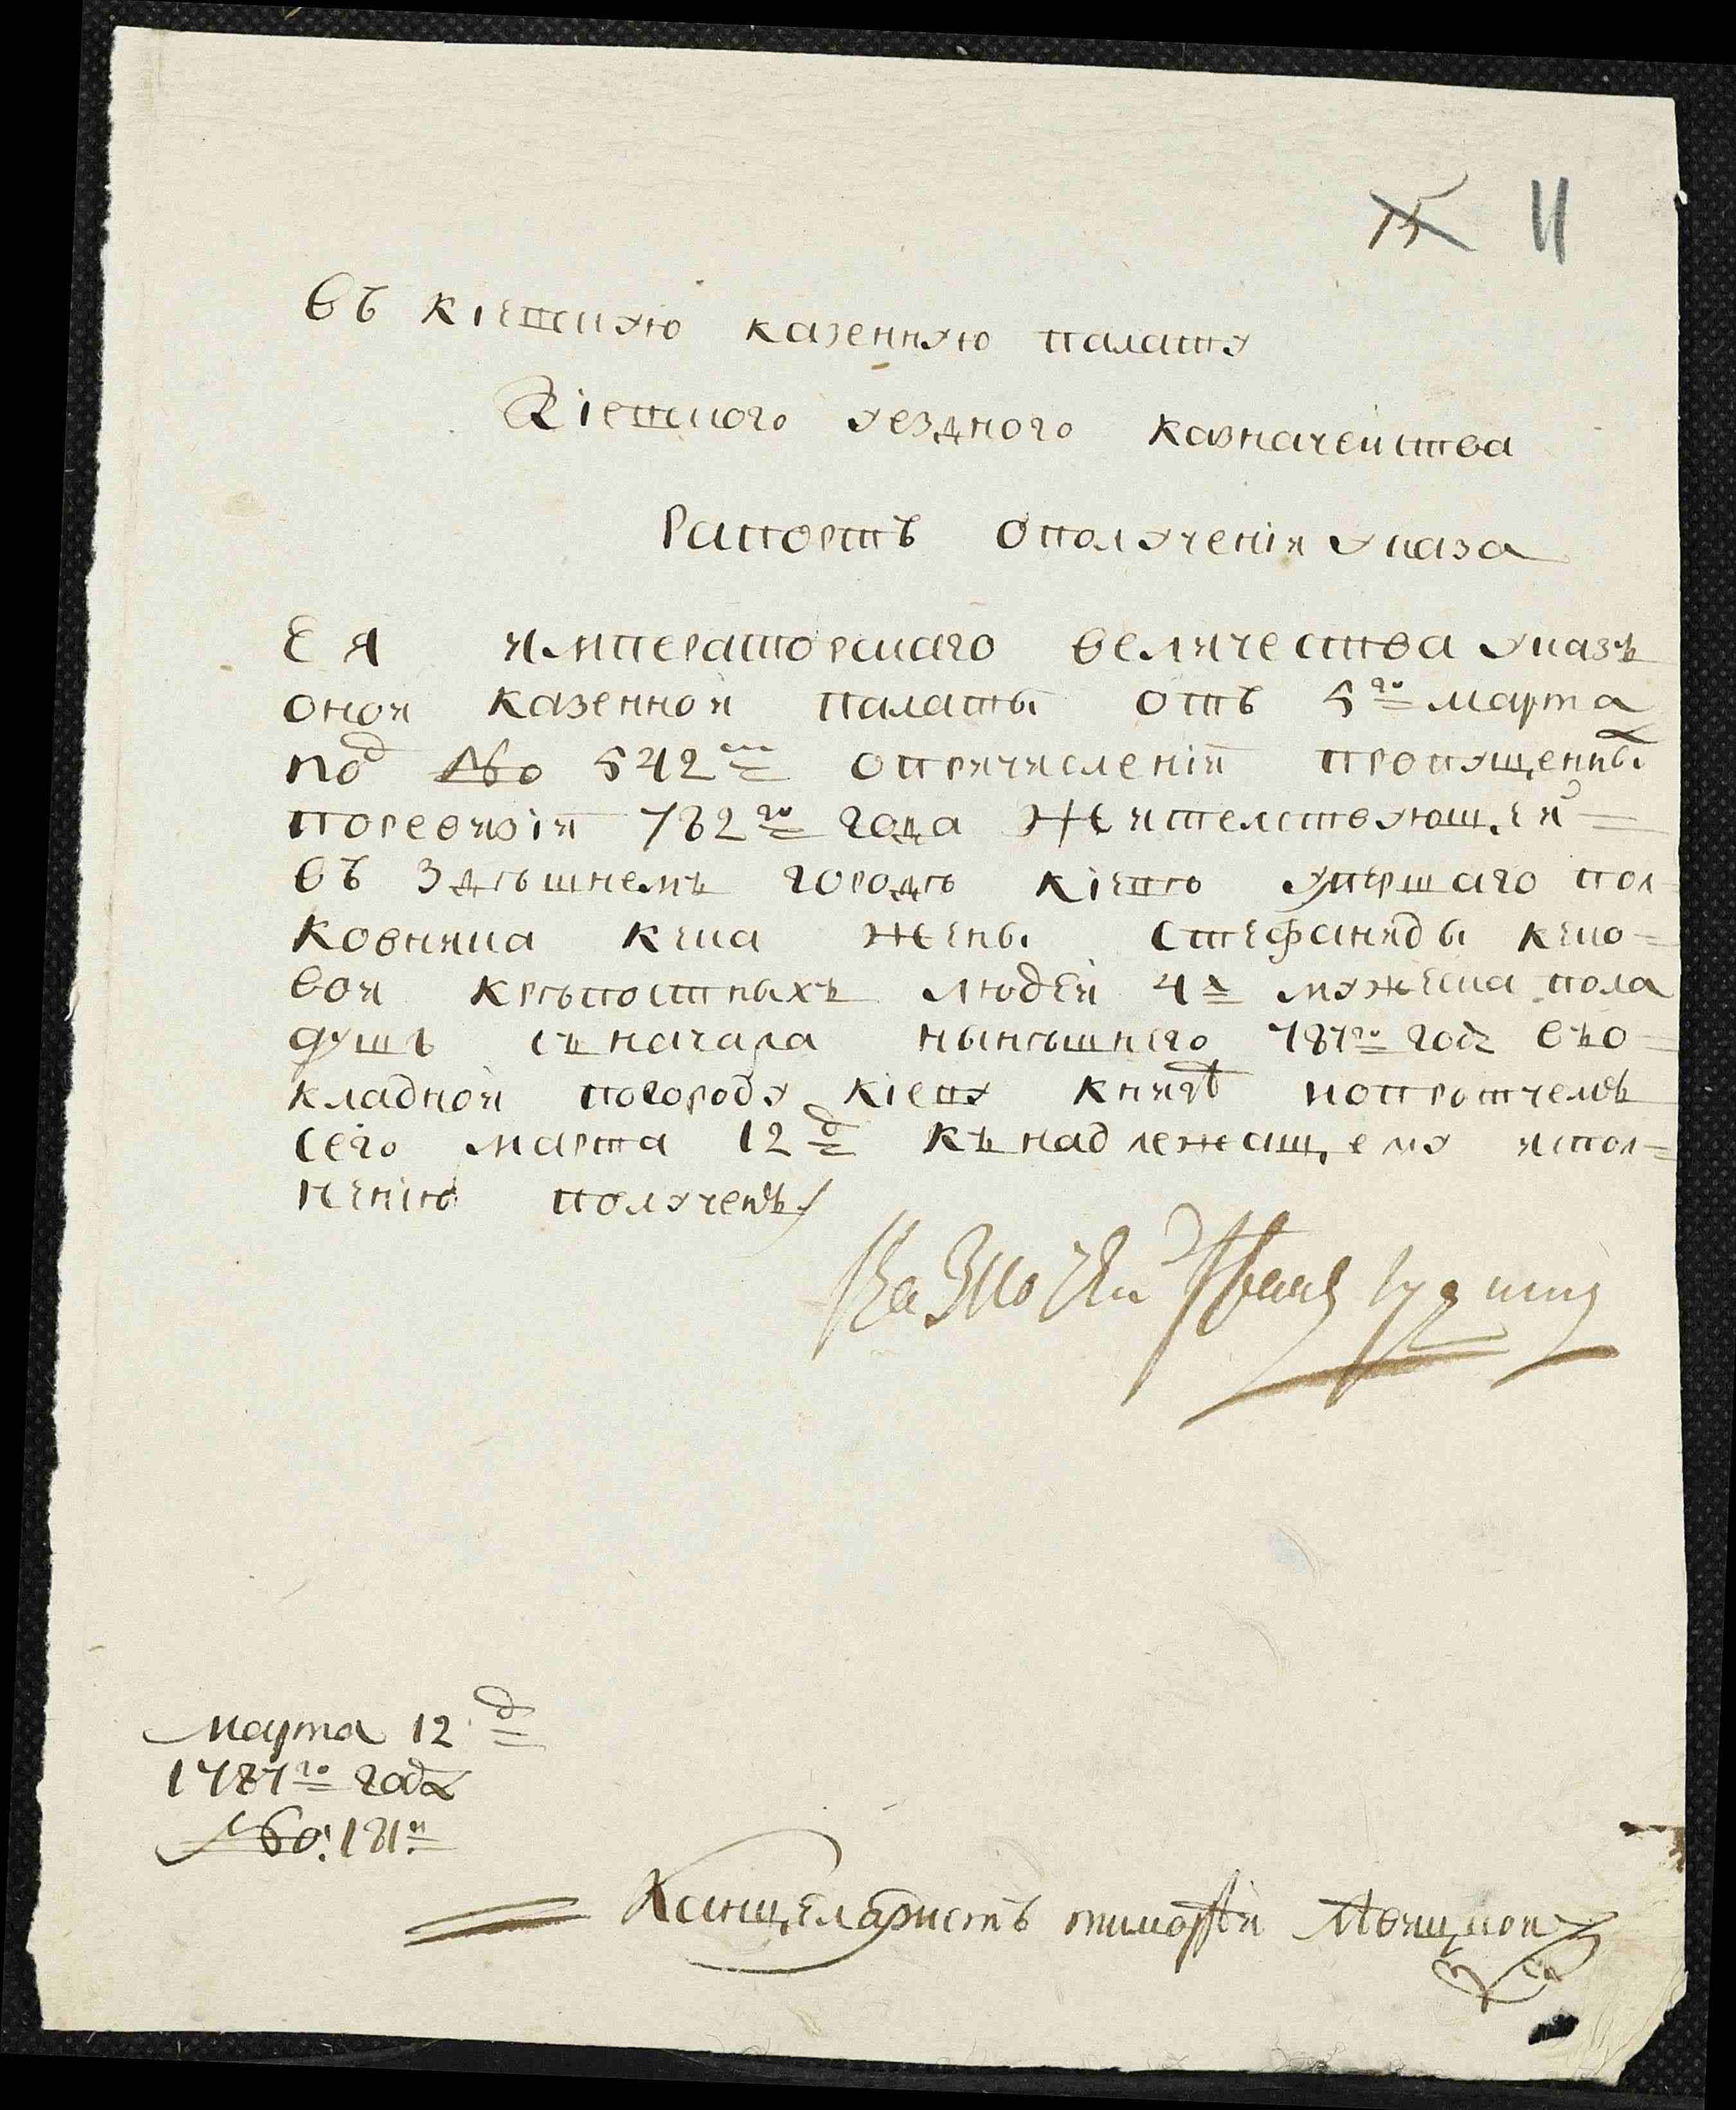 15 11
въ кіевскую казенную палату
Кіевского уездного казначейства
Рапортъ ополученіи указа
ЕЯ императорскаго величества указъ
оной казенной палаты отъ 5го марта
под No 542м опричисленіи пропущенны
поревизіи 782го года жителствующей
въ здѣшнемъ городѣ кіевѣ умершаго пол
ковника жены стефаниды
вой крѣпостныхъ людей 4х мужеска пола
душъ съначала нынѣшнего 787го года въо=
кладной погороду кіеву книгѣ
сего марта 12 д кънадлежащему испол=
ненію полученъ
Казначей Иванъ
марта 12 д
1787го года
No: 181й
Канцеляристъ тимофей